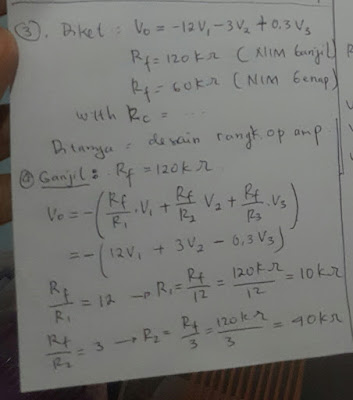 ③. Diket : V₀ = -12V₁ - 3V₂ + 0,3V₃
Rf = 120 kΩ ( NIM Ganjil )
Rf = 60 kΩ ( NIM Genap )
with Rc = ...
Ditanya = desain rangk. op amp
Ganjil : Rf = 120 kΩ
V₀ = - ( Rf/R₁ . V₁ + Rf/R₂ V₂ + Rf/R₃ . V₃ )
= - ( 12V₁ + 3V₂ - 0,3V₃ )
Rf/R₁ = 12 → R₁ = Rf/12 = 120kΩ/12 = 10 kΩ
Rf/R₂ = 3 → R₂ = Rf/3 = 120kΩ/3 = 40 kΩ